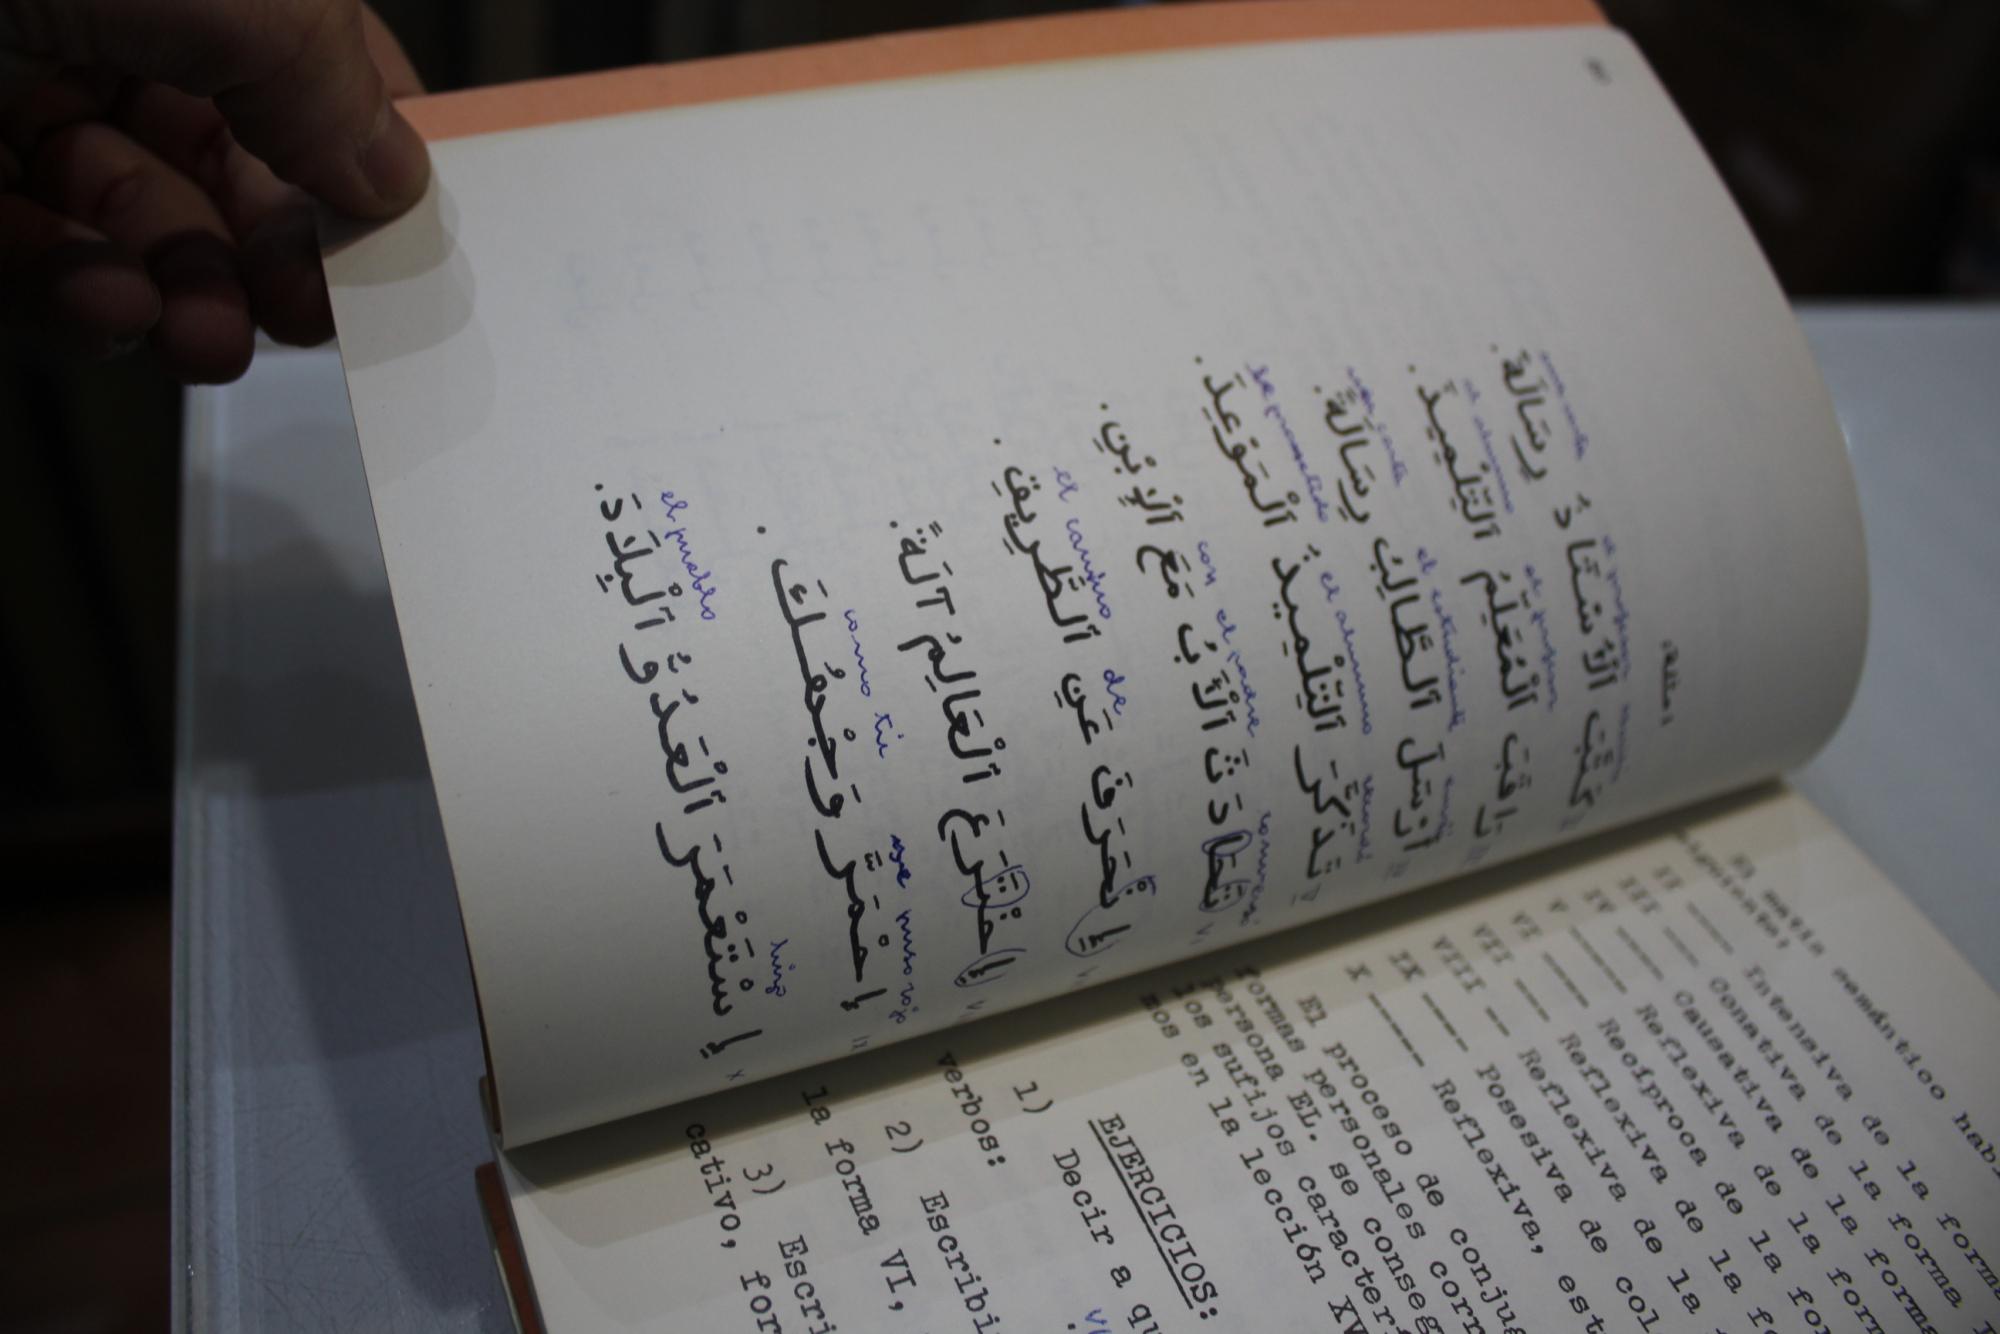 امثلة
كَتَّبَ ٱلْأُسْتَاذُ رِسَالَةً.
el profesor
una carta
رَاقَبَ ٱلْمُعَلِّمُ ٱلتِّلْمِيذَ.
el profesor
el alumno
أَرْسَلَ ٱلطَّالِبُ رِسَالَةً.
el estudiante
una carta
تَذَكَّرَ ٱلتِّلْمِيذُ ٱلْمَوْعِدَ.
el alumno
V
تَحَادَثَ ٱلْأَبُ مَعَ ٱلْإِبْنِ.
el padre
con
VI
إِنْحَرَفَ عَنِ ٱلطَّرِيقِ.
de
el camino
إِخْتَرَعَ ٱلْعَالِمُ آلَةً.
إِحْمَرَّ وَجْهُكَ.
se puso rojo
como tú
إِسْتَعْمَرَ ٱلْعَدُوُّ ٱلْبِلَادَ.
hizo
el pueblo
X
El matiz semántico habi
siguiente:
II ---- Intensiva de la forma
III ---- Conativa de la forma
IV ---- Causativa de la forma
V ---- Reflexiva de la forma
VI ---- Recíproca de la for
VII ---- Reflexiva de la fo
VIII -- Reflexiva de la
IX ---- Posesiva de col
X ---- Reflexiva, est
El proceso de conjug
formas personales corr
persona EL. se conseg
los sufijos caracter
mos en la lección XV
EJERCICIOS:
1) Decir a qu
verbos:
2) Escribi
la forma VI,
3) Escri
cativo, for